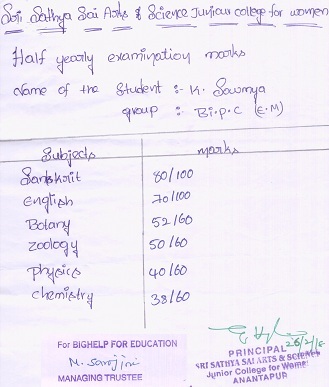 Sri Sathya Sai Arts & Science Junior college for women
Half yearly examination marks
Name of the Student :- K. Sowmya
group :- Bi.P.C (E.M)
Subjects marks
Sanskrit 80/100
English 70/100
Botany 52/60
Zoology 50/60
Physics 40/60
Chemistry 38/60
For BIGHELP FOR EDUCATION
M. Sarojini
MANAGING TRUSTEE
PRINCIPAL
SRI SATHYA SAI ARTS & SCIENCE
Junior College for Women
ANANTAPUR